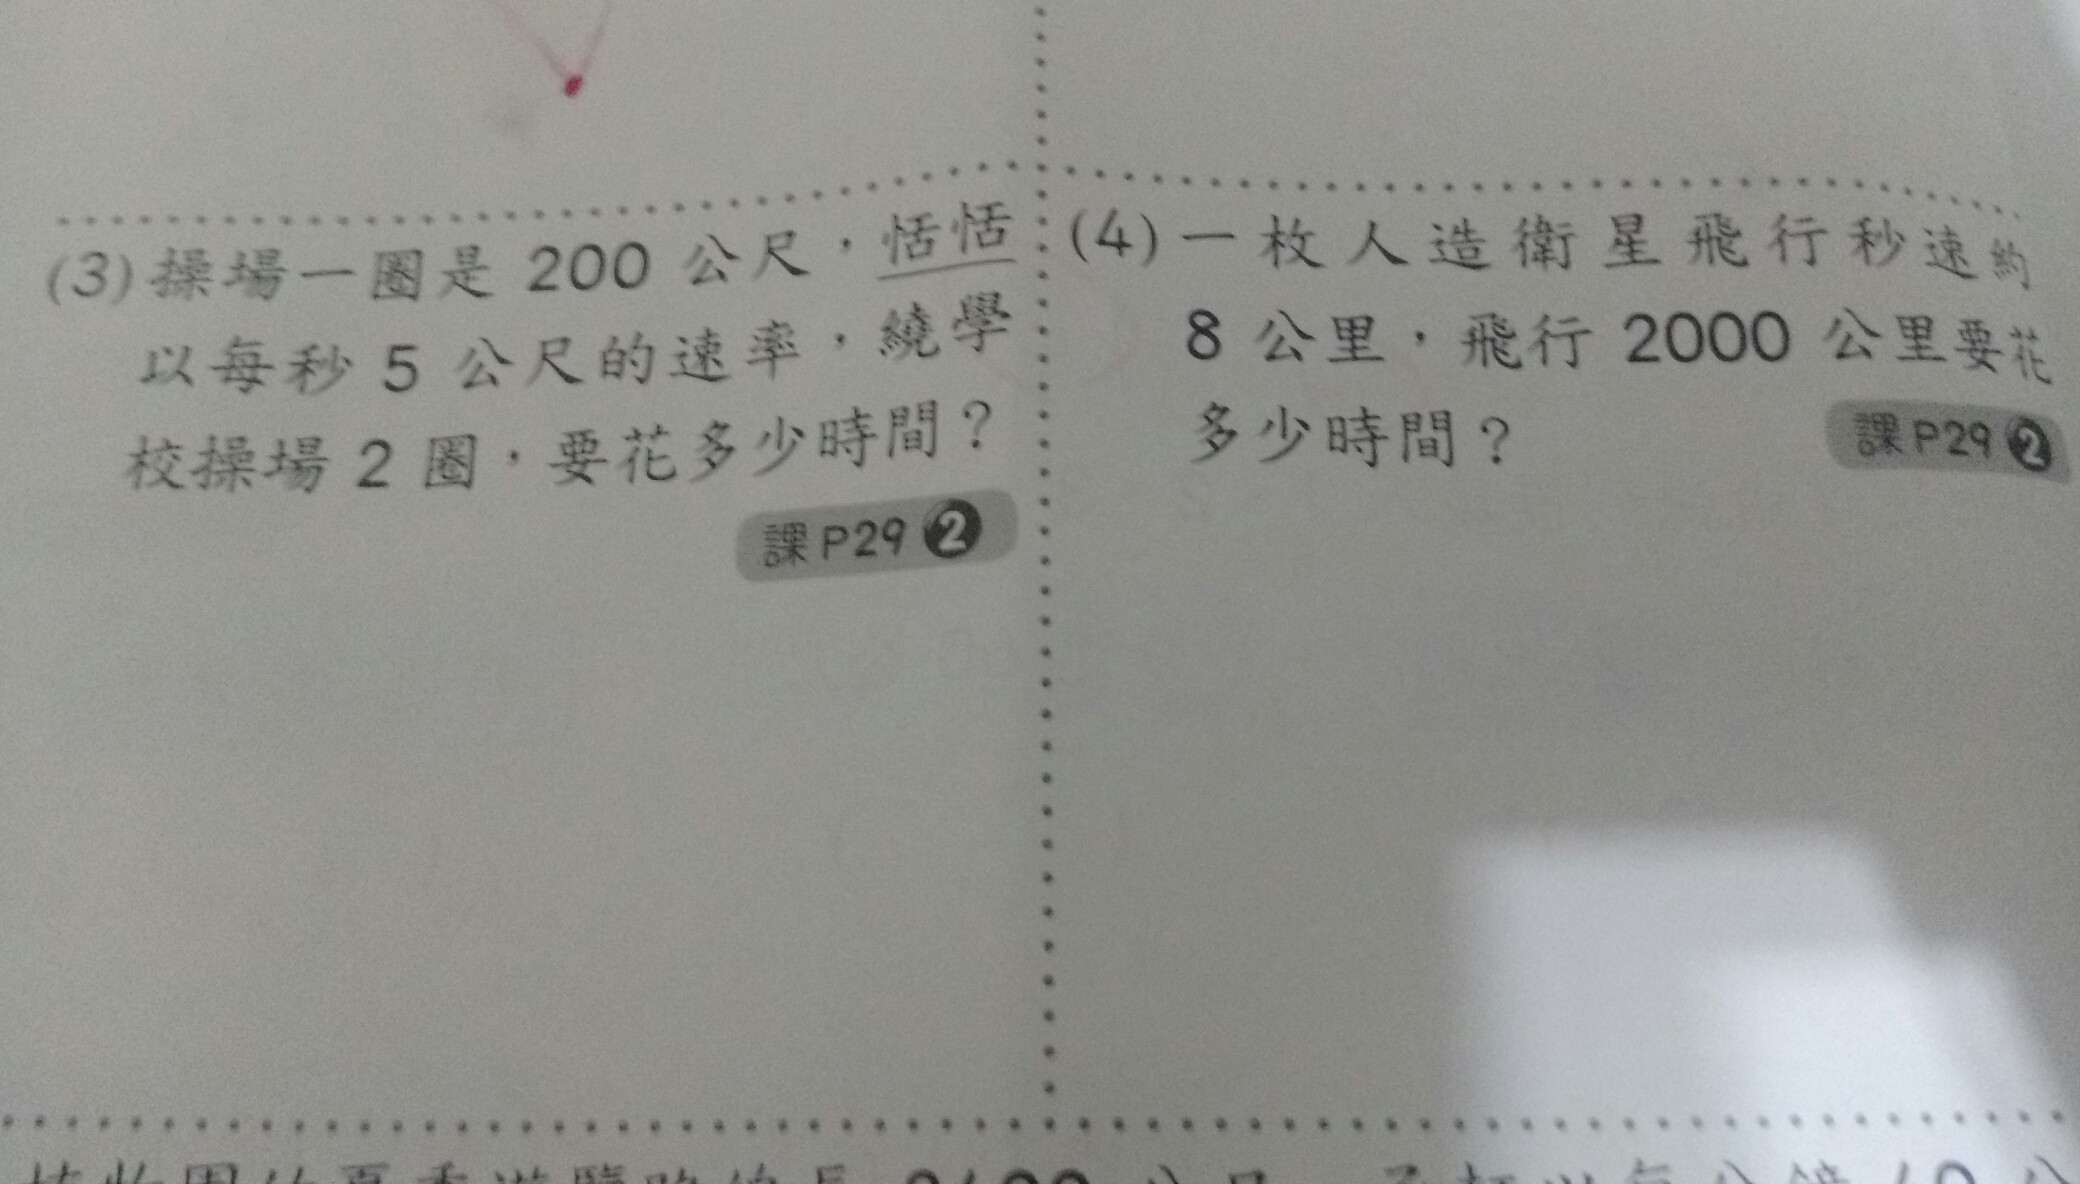 (3)操場一圈是 200 公尺，恬恬
以每秒 5 公尺的速率，繞學
校操場 2 圈，要花多少時間？
課P29 2
(4)一枚人造衛星飛行秒速約
8 公里，飛行 2000 公里要花
多少時間？
課P29 2